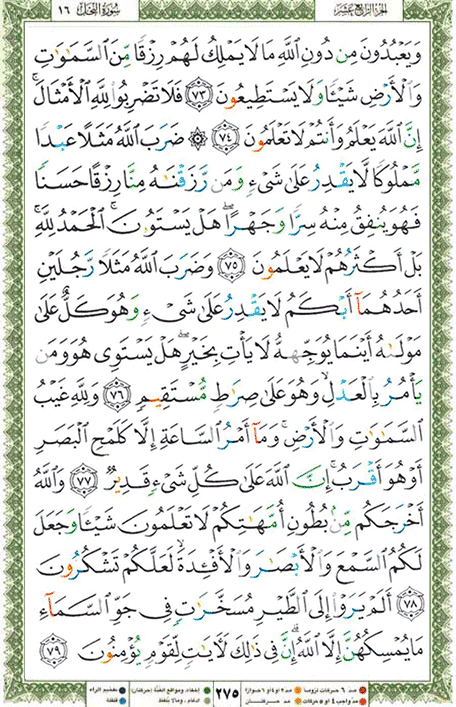 سُورَةُ النَّحْل ١٦
الجزء الرابع عشر
وَيَعْبُدُونَ مِن دُونِ اللَّهِ مَا لَا يَمْلِكُ لَهُمْ رِزْقًا مِّنَ السَّمَاوَاتِ
وَالْأَرْضِ شَيْئًا وَلَا يَسْتَطِيعُونَ ﴿٧٣﴾ فَلَا تَضْرِبُوا لِلَّهِ الْأَمْثَالَ ۚ
إِنَّ اللَّهَ يَعْلَمُ وَأَنتُمْ لَا تَعْلَمُونَ ﴿٧٤﴾ ۞ ضَرَبَ اللَّهُ مَثَلًا عَبْدًا
مَّمْلُوكًا لَّا يَقْدِرُ عَلَىٰ شَيْءٍ وَمَن رَّزَقْنَاهُ مِنَّا رِزْقًا حَسَنًا
فَهُوَ يُنفِقُ مِنْهُ سِرًّا وَجَهْرًا ۖ هَلْ يَسْتَوُونَ ۚ الْحَمْدُ لِلَّهِ ۚ
بَلْ أَكْثَرُهُمْ لَا يَعْلَمُونَ ﴿٧٥﴾ وَضَرَبَ اللَّهُ مَثَلًا رَّجُلَيْنِ
أَحَدُهُمَا أَبْكَمُ لَا يَقْدِرُ عَلَىٰ شَيْءٍ وَهُوَ كَلٌّ عَلَىٰ
مَوْلَاهُ أَيْنَمَا يُوَجِّههُّ لَا يَأْتِ بِخَيْرٍ ۖ هَلْ يَسْتَوِي هُوَ وَمَن
يَأْمُرُ بِالْعَدْلِ ۙ وَهُوَ عَلَىٰ صِرَاطٍ مُّسْتَقِيمٍ ﴿٧٦﴾ وَلِلَّهِ غَيْبُ
السَّمَاوَاتِ وَالْأَرْضِ ۚ وَمَا أَمْرُ السَّاعَةِ إِلَّا كَلَمْحِ الْبَصَرِ
أَوْ هُوَ أَقْرَبُ ۚ إِنَّ اللَّهَ عَلَىٰ كُلِّ شَيْءٍ قَدِيرٌ ﴿٧٧﴾ وَاللَّهُ
أَخْرَجَكُم مِّن بُطُونِ أُمَّهَاتِكُمْ لَا تَعْلَمُونَ شَيْئًا وَجَعَلَ
لَكُمُ السَّمْعَ وَالْأَبْصَارَ وَالْأَفْئِدَةَ ۙ لَعَلَّكُمْ تَشْكُرُونَ
﴿٧٨﴾ أَلَمْ يَرَوْا إِلَى الطَّيْرِ مُسَخَّرَاتٍ فِي جَوِّ السَّمَاءِ
مَا يُمْسِكُهُنَّ إِلَّا اللَّهُ ۗ إِنَّ فِي ذَٰلِكَ لَآيَاتٍ لِّقَوْمٍ يُؤْمِنُونَ ﴿٧٩﴾
مد ٦ حركات لزوما مد ٢ او ٤ او ٦ جوازا
مد واجب ٤ او ٥ حركات مد حركتان
٢٧٥
إخفاء، ومواقع الغنة (حركتان) تفخيم الراء
إدغام، وما لا يلفظ قلقلة